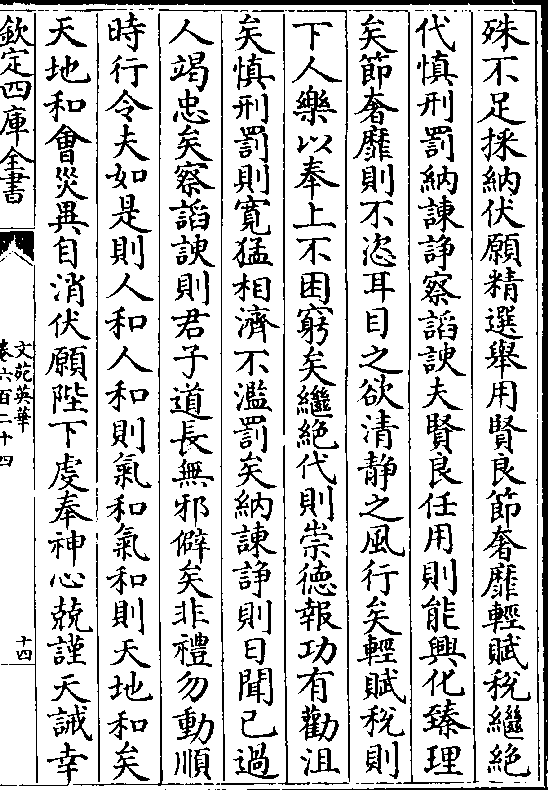 殊不足採納伏願精選舉用賢良節奢靡輕賦稅繼絕
代慎刑罰納諫諍察謟諛夫賢良任用則能興化臻理
矣節奢靡則不恣耳目之欲清静之風行矣輕賦稅則
下人樂以奉上不困窮矣繼絕代則崇徳報功有勸沮
矣慎刑罰則寛猛相濟不濫罰矣納諫諍則日聞已過
人竭忠矣察謟諛則君子道長無邪僻矣非禮勿動順
時行令夫如是則人和人和則氣和氣和則天地和矣
天地和㑹災異自消伏願陛下䖍奉神心兢謹天誡幸
欽定四庫全書
文苑英華
卷六百二十四
十四